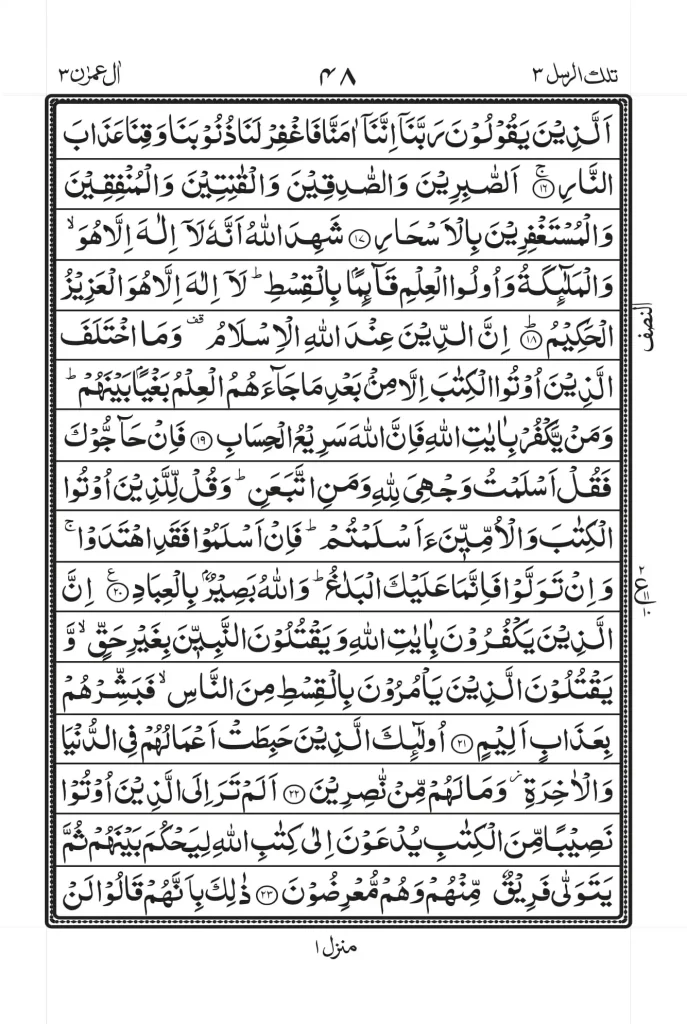 تلك الرسل ٣
٤٨
اٰل عمرٰن ٣
اَلَّذِيْنَ يَقُوْلُوْنَ رَبَّنَاۤ اِنَّنَاۤ اٰمَنَّا فَاغْفِرْ لَنَا ذُنُوْبَنَا وَقِنَا عَذَابَ
النَّارِ ۚ ﴿۱۶﴾ اَلصّٰبِرِيْنَ وَالصّٰدِقِيْنَ وَالْقٰنِتِيْنَ وَالْمُنْفِقِيْنَ
وَالْمُسْتَغْفِرِيْنَ بِالْاَسْحَارِ ﴿۱۷﴾ شَهِدَ اللّٰهُ اَنَّهٗ لَاۤ اِلٰهَ اِلَّا هُوَ ۙ
وَالْمَلٰٓئِكَةُ وَاُولُوا الْعِلْمِ قَآئِمًۢا بِالْقِسْطِ ؕ لَاۤ اِلٰهَ اِلَّا هُوَ الْعَزِيْزُ
الْحَكِيْمُ ؕ ﴿۱۸﴾ اِنَّ الدِّيْنَ عِنْدَ اللّٰهِ الْاِسْلَامُ قف وَمَا اخْتَلَفَ
النصف
الَّذِيْنَ اُوْتُوا الْكِتٰبَ اِلَّا مِنْۢ بَعْدِ مَا جَآءَهُمُ الْعِلْمُ بَغْيًۢا بَيْنَهُمْ ؕ
وَمَنْ يَّكْفُرْ بِاٰيٰتِ اللّٰهِ فَاِنَّ اللّٰهَ سَرِيْعُ الْحِسَابِ ﴿۱۹﴾ فَاِنْ حَآجُّوْكَ
فَقُلْ اَسْلَمْتُ وَجْهِيَ لِلّٰهِ وَمَنِ اتَّبَعَنِ ؕ وَقُلْ لِّلَّذِيْنَ اُوْتُوا
الْكِتٰبَ وَالْاُمِّيّٖنَ ءَاَسْلَمْتُمْ ؕ فَاِنْ اَسْلَمُوْا فَقَدِ اهْتَدَوْا ۚ
وَاِنْ تَوَلَّوْا فَاِنَّمَا عَلَيْكَ الْبَلٰغُ ؕ وَاللّٰهُ بَصِيْرٌۢ بِالْعِبَادِ ﴿۲۰﴾ ع اِنَّ
٢
ع ١١
١٠
الَّذِيْنَ يَكْفُرُوْنَ بِاٰيٰتِ اللّٰهِ وَيَقْتُلُوْنَ النَّبِيّٖنَ بِغَيْرِ حَقٍّ ۙ وَّ
يَقْتُلُوْنَ الَّذِيْنَ يَاْمُرُوْنَ بِالْقِسْطِ مِنَ النَّاسِ ۙ فَبَشِّرْهُمْ
بِعَذَابٍ اَلِيْمٍ ﴿۲۱﴾ اُولٰٓئِكَ الَّذِيْنَ حَبِطَتْ اَعْمَالُهُمْ فِي الدُّنْيَا
وَالْاٰخِرَةِ ؗ وَمَا لَهُمْ مِّنْ نّٰصِرِيْنَ ﴿۲۲﴾ اَلَمْ تَرَ اِلَى الَّذِيْنَ اُوْتُوْا
نَصِيْبًا مِّنَ الْكِتٰبِ يُدْعَوْنَ اِلٰى كِتٰبِ اللّٰهِ لِيَحْكُمَ بَيْنَهُمْ ثُمَّ
يَتَوَلّٰى فَرِيْقٌ مِّنْهُمْ وَهُمْ مُّعْرِضُوْنَ ﴿۲۳﴾ ذٰلِكَ بِاَنَّهُمْ قَالُوْا لَنْ
منزل ١